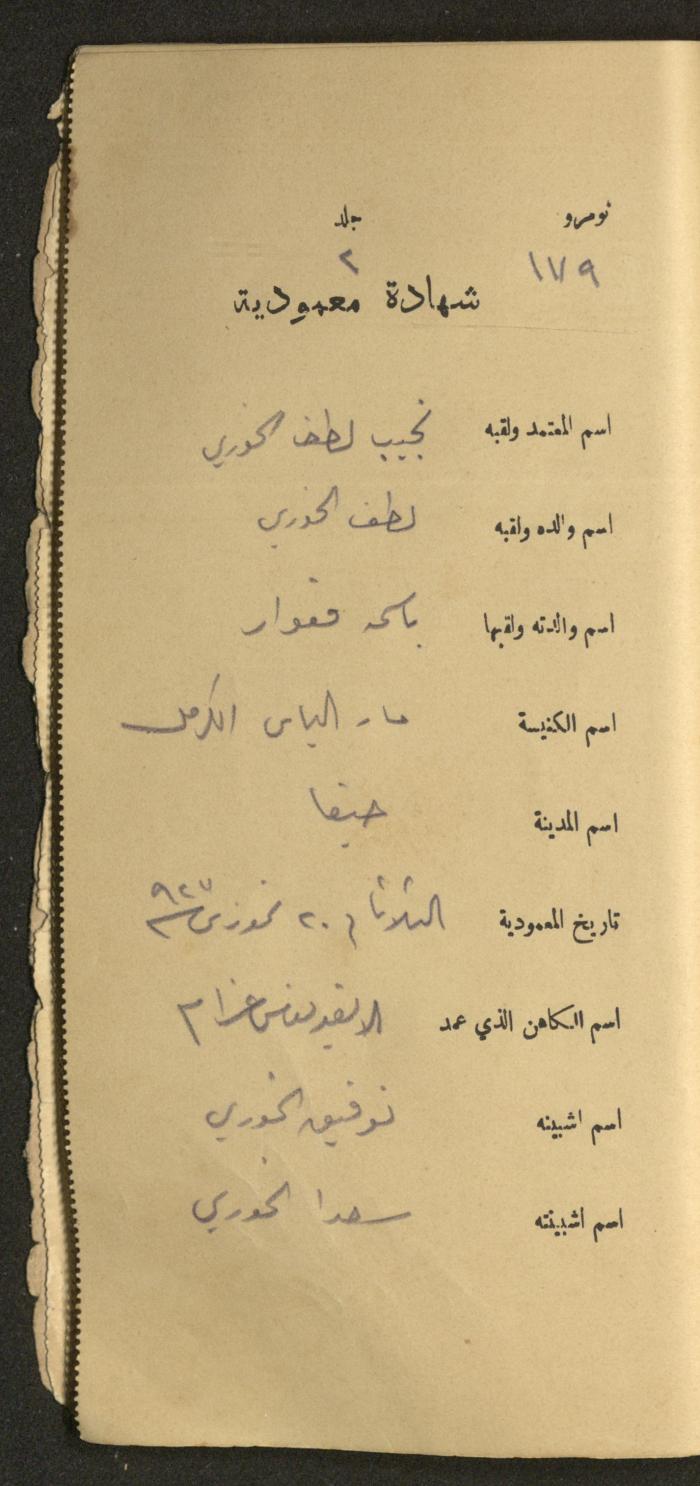 نومرو جلد
١٧٩ ٢
شهادة معمودية
اسم المعتمد ولقبه نجيب لطف الخوري
اسم والده ولقبه لطف الخوري
اسم والدته ولقبها باسمه قعوار
اسم الكنيسة مار الياس الكرمل
اسم المدينة حيفا
تاريخ المعمودية الثلاثاء ٢٠ تموز سنة ٩٢٧
اسم الكاهن الذي عمد عزام
اسم اشبينه توفيق الخوري
اسم اشبينته سعدا الخوري